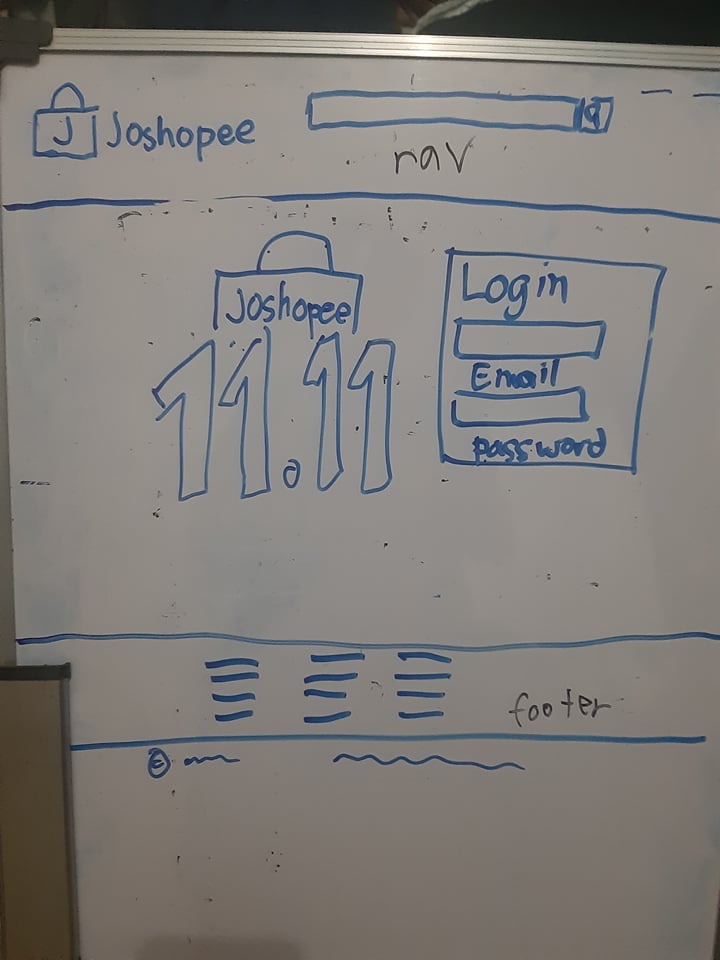 J Joshopee
nav
Joshopee
11.11
Login
Email
password
footer